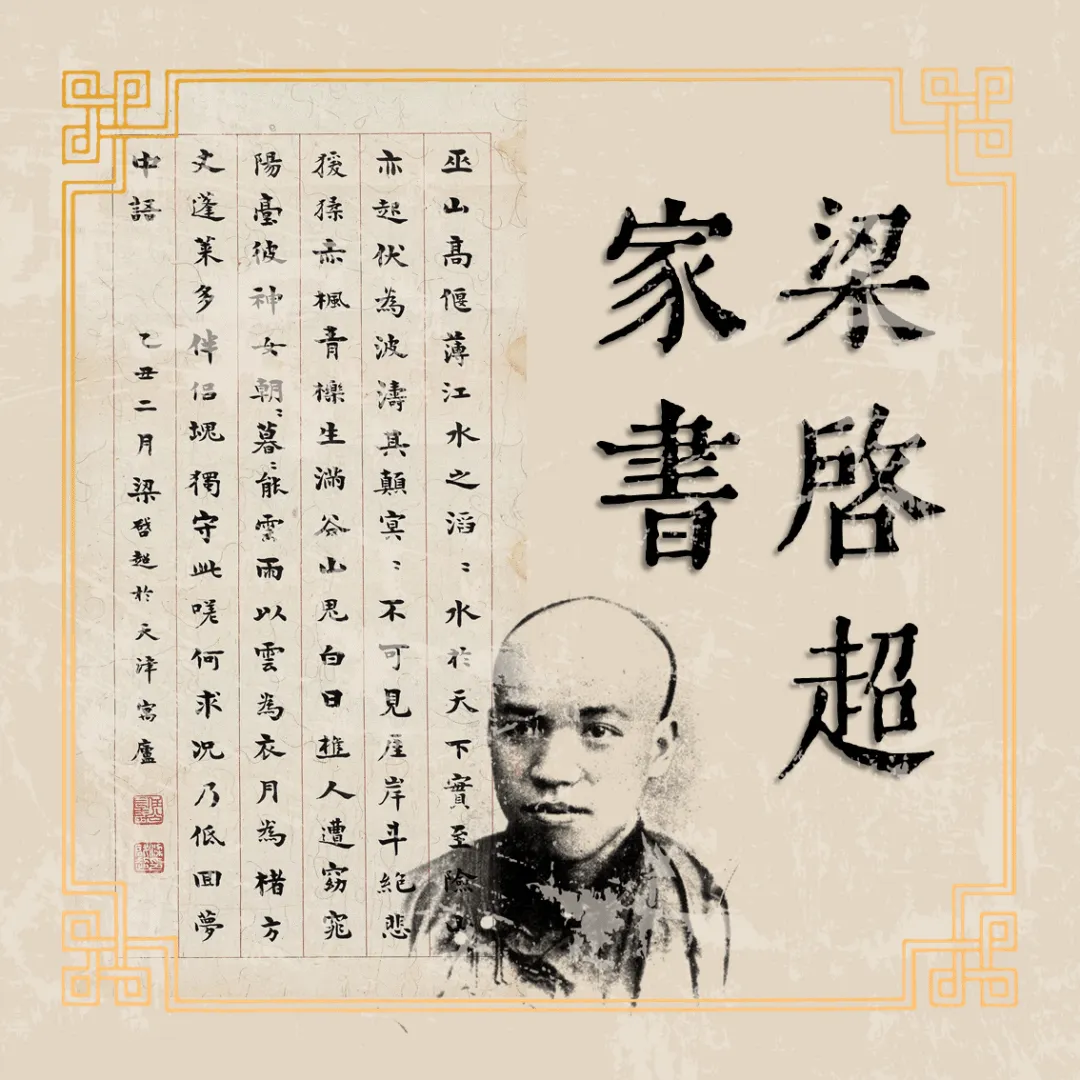 梁啓超
家書
巫山高偃薄江水之滔〻水於天下實至險山
亦起伏為波濤其顛冥〻不可見厓岸斗絶悲
猨猱赤楓青櫟生滿谷山鬼白日樵人遭窈窕
陽臺彼神女朝〻暮〻能雲雨以雲為衣月為楮方
丈蓬萊多伴侣塊獨守此嗟何求況乃低回夢
中語 乙丑二月梁啓超於天津寓廬